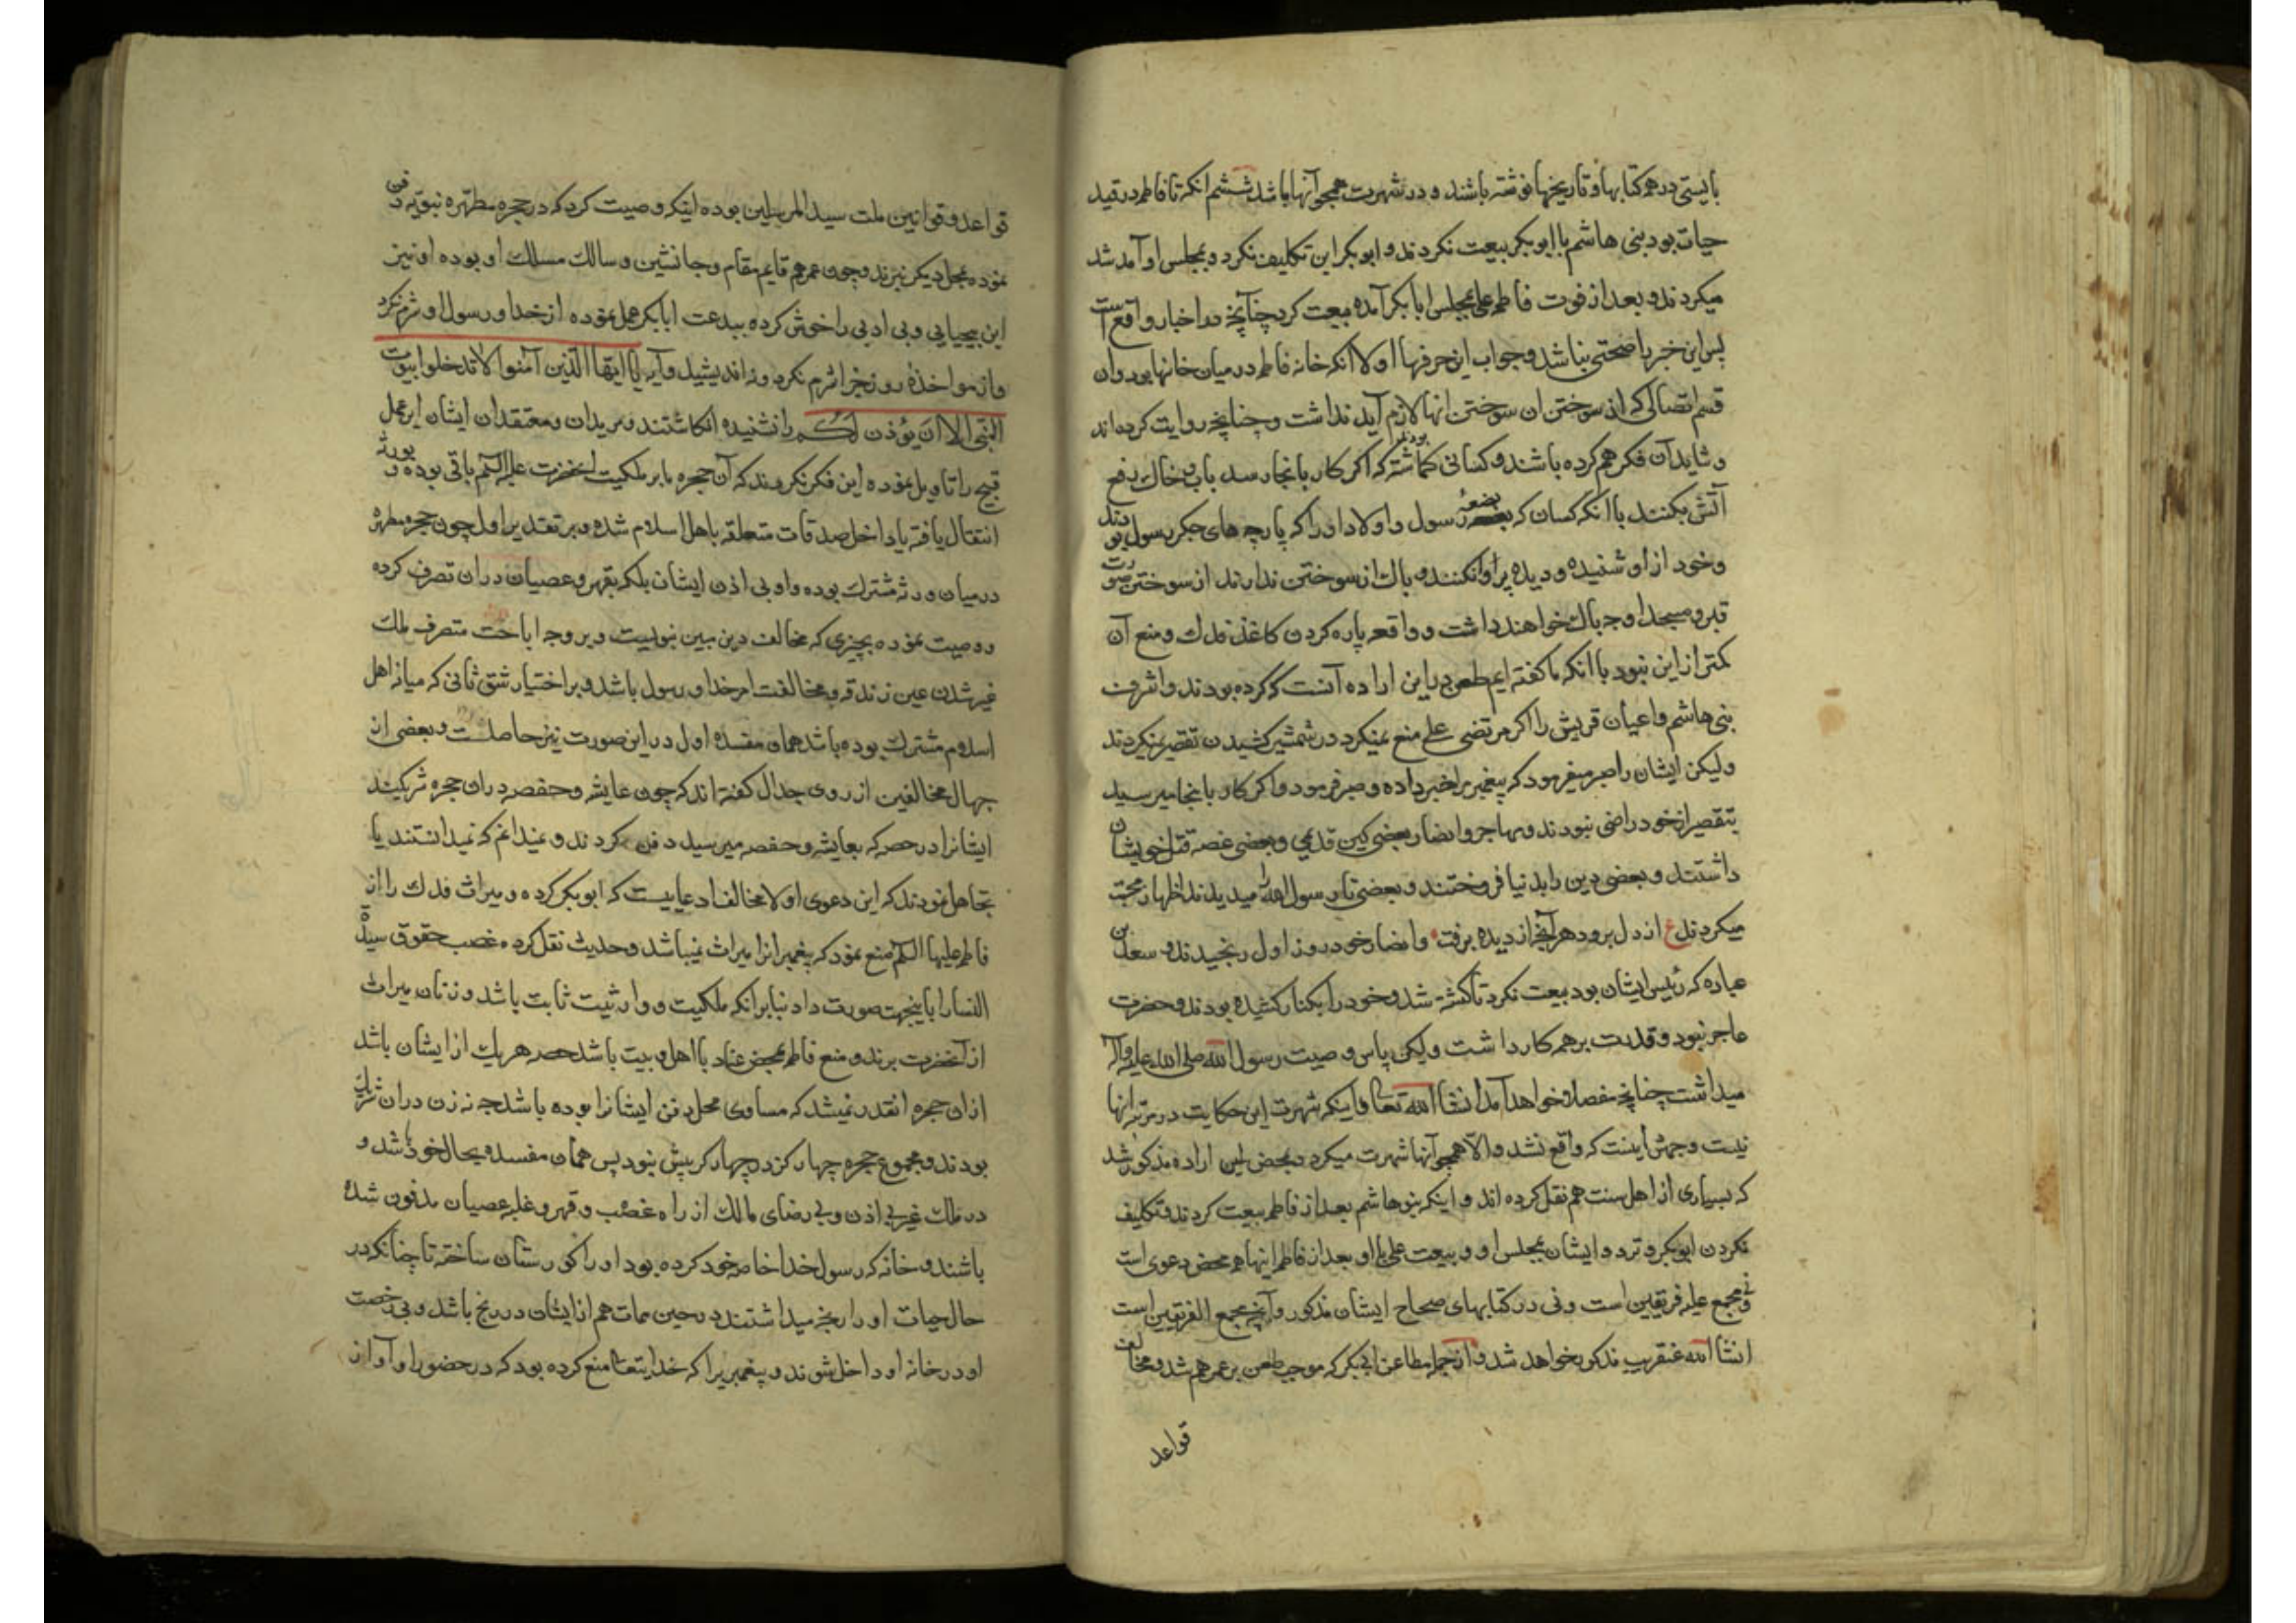 بایستی در همه کتابها و تاریخها نوشته باشند و در شهرت همچو آنها باشد ششم آنکه تا فاطمه در قید
حیات بود بنی هاشم با ابوبکر بیعت نکردند و ابوبکر این تکلیف نکرد و بمجلس او آمد شد
میکردند و بعد از فوت فاطمه علی بمجلس ابابکر آمده بیعت کرد چنانچه در اخبار واقع است
پس این خبر را صحتی نباشد و جواب این حرفها اولا آنکه خانه فاطمه در میان خانها بود و آن
قسم اتصالی که از سوختن آن سوختن آنها لازم آید نداشت و چنانچه روایت کرده‌اند
و شاید آن فکر هم کرده باشند و کسانی گماشته بودند که اگر کار بانجا رسد باب و خاک دفع
آتش بکنند با آنکه کسان که بضعهٔ رسول و اولاد او را که پارچه های جگر رسول بودند
و خود از او شنیده و دیده پروا نکنند و باک از سوختن ندارند از سوختن صورت
قبر و مسجد او چه باک خواهند داشت و واقعه پاره کردن کاغذ فدک و منع آن
کمتر از این نبود با آنکه ما گفته ایم طعن در این اراده آنست که کرده بودند و اشرف
بنی هاشم و اعیان قریش را اگر مرتضی علی منع نمیکرد در شمشیر کشیدن تقصیر نمیکردند
ولیکن ایشان را صبر میفرمود که پیغمبر خبر داده و صبر فرموده و اگر کار بانجا میرسید
بتقصیر از خود راضی نبودند و مهاجر و انصار بعضی کین قدیمی و بعضی غصه قتل خویشان
داشتند و بعضی دین را بدنیا فروختند و بعضی تا رسول الله را میدیدند اظهار محبت
میکردند ع از دل برود هر آنچه از دیده برفت و انصار خود روز اول رنجیدند و سعد بن
عباده که رئیس ایشان بود بیعت نکرد تا کشته شد و خود را بکنار کشیده بودند و حضرت
عاجز نبود و قدرت بر همه کار داشت ولیکن پاس وصیت رسول الله صلی الله علیه وآله
میداشت چنانچه مفصلا خواهد آمد انشا الله تعالی و اینکه شهرت این حکایت در مرتبه آنها
نیست وجهش اینست که واقع نشد والا همچو آنها شهرت میکرد و بمحض این اراده مذکور شد
که بسیاری از اهل سنت هم نقل کرده اند و اینکه بنو هاشم بعد از فاطمه بیعت کردند و تکلیف
نکردن ابوبکر و تردد ایشان بمجلس او و بیعت علی با او بعد از فاطمه اینها همه محض دعوی است
و نی مجمع علیه فریقین است و نی در کتابهای صحاح ایشان مذکور و آنچه مجمع الفریقین است
انشا الله عنقریب مذکور خواهد شد و از جمله مطاعن ابی بکر که موجب طعن بر عمر هم شد و مخالف
قواعد
قواعد و قوانین ملت سید المرسلین بوده اینکه وصیت کرد که در حجره مطهره نبویه دفن
نموده بمحل دیگر نبرند و چون عمر هم قایم مقام و جانشین و سالک مسلک او بوده او نیز
این بیحیایی و بی ادبی را خوش کرده ببدعت ابابکر عمل نموده از خدا و رسول او شرم نکرد
و از مواخذهٔ روز جزا شرم نکرد و نه اندیشید و آیه یا ایها الذین آمنوا لا تدخلوا بیوت
النبی الا ان یؤذن لکم را نشنیده انگاشتند و مریدان و معتقدان ایشان این عمل
قبیح را تاویل نموده این فکر نکردند که آن حجره یا بر ملکیت آنحضرت علیه السلم باقی بوده و بورثه
انتقال یافته یا داخل صدقات متعلقه باهل اسلام شده و بر تقدیر اول چون حجره مطهره
در میان ورثه مشترک بوده و او بی اذن ایشان بلکه بقهر و عصیان در ان تصرف کرده
و وصیت نموده بچیزی که مخالف دین مبین نبویست و بر وجه اباحت متصرف ملک
غیر شدن عین زندقه و مخالفت امر خدا و رسول باشد و بر اختیار شق ثانی که میانه اهل
اسلام مشترک بوده باشد همان مفسده اول در این صورت نیز حاصلست و بعضی از
جهال مخالفین از روی جدال گفته اند که چون عایشه و حفصه در ان حجره شریکند
ایشانرا در حصه که بعایشه و حفصه میرسید دفن کردند و نمیدانم که نمیدانستند یا
تجاهل نمودند که این دعوی اولا مخالف ادعاییست که ابوبکر کرده و میراث فدک را از
فاطمه علیها السلم منع نمود که پیغمبرانرا میراث نمیباشد و حدیث نقل کرده غصب حقوق سیدة
النسا را باینجهت صورت داد بنا برانکه ملکیت و وارثیت ثابت باشد و زنان میراث
از آنحضرت برند و منع فاطمه محض عناد با اهل بیت باشد حصه هر یک از ایشان باشد
از ان حجره انقدر نمیشد که مساوی محل دفن ایشانرا بوده باشد چه نه زن در ان شریک
بودند و مجموع حجره چهار گز در چهار گز بیش نبود پس همان مفسده بحال خود باشد و
در ملک غیر بی اذن و بی رضای مالک از راه غصب و قهر و غلبه عصیان مدفون شده
باشند و خانه که رسول خدا خاصه خود کرده بود او را گورستان ساخته تا چنانکه در
حال حیات او را رنجه میداشتند در حین ممات هم از ایشان در رنج باشد و بی رخصت
او در خانه او داخل شوند و پیغمبریرا که خدایتعالی منع کرده بود که در حضور او آواز